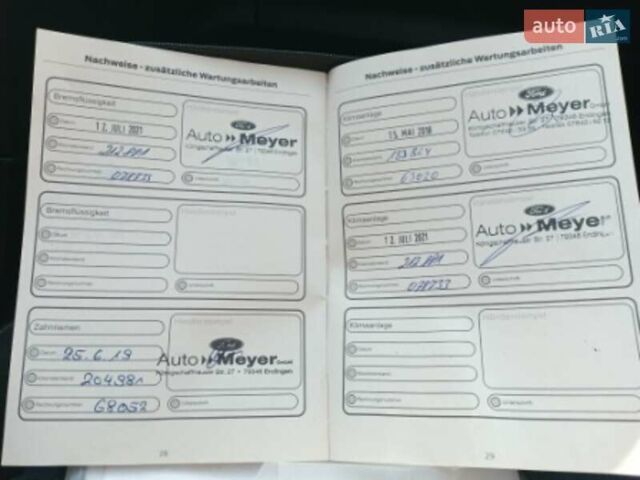 auto RIA.com
Nachweise - zusätzliche Wartungsarbeiten
Bremsflüssigkeit
Datum
12. JULI 2021
Kilometerstand
Rechnungsnummer
078733
Ford
Auto Meyer
Königschaffhauser Str. 27 | 79346 Endingen
Unterschrift
Bremsflüssigkeit
Händlerstempel
Datum
Kilometerstand
Rechnungsnummer
Unterschrift
Zahnriemen
Datum
25.6.19
Kilometerstand
204981
Rechnungsnummer
68052
Händlerstempel
Ford
Auto Meyer GmbH
Königschaffhauser Str. 27 • 79346 Endingen
Unterschrift
28
Nachweise - zusätzliche Wartungsarbeiten
Klimaanlage
Datum
15. MAI 2018
Kilometerstand
Rechnungsnummer
63020
Ford
Auto Meyer GmbH
Königschaffhauser Str. 27 79346 Endingen
Unterschrift
Klimaanlage
Datum
12. JULI 2021
Kilometerstand
Rechnungsnummer
078733
Ford
Auto Meyer
Königschaffhauser Str. 27 | 79346 Endingen
Unterschrift
Klimaanlage
Datum
Kilometerstand
Rechnungsnummer
Händlerstempel
Unterschrift
29